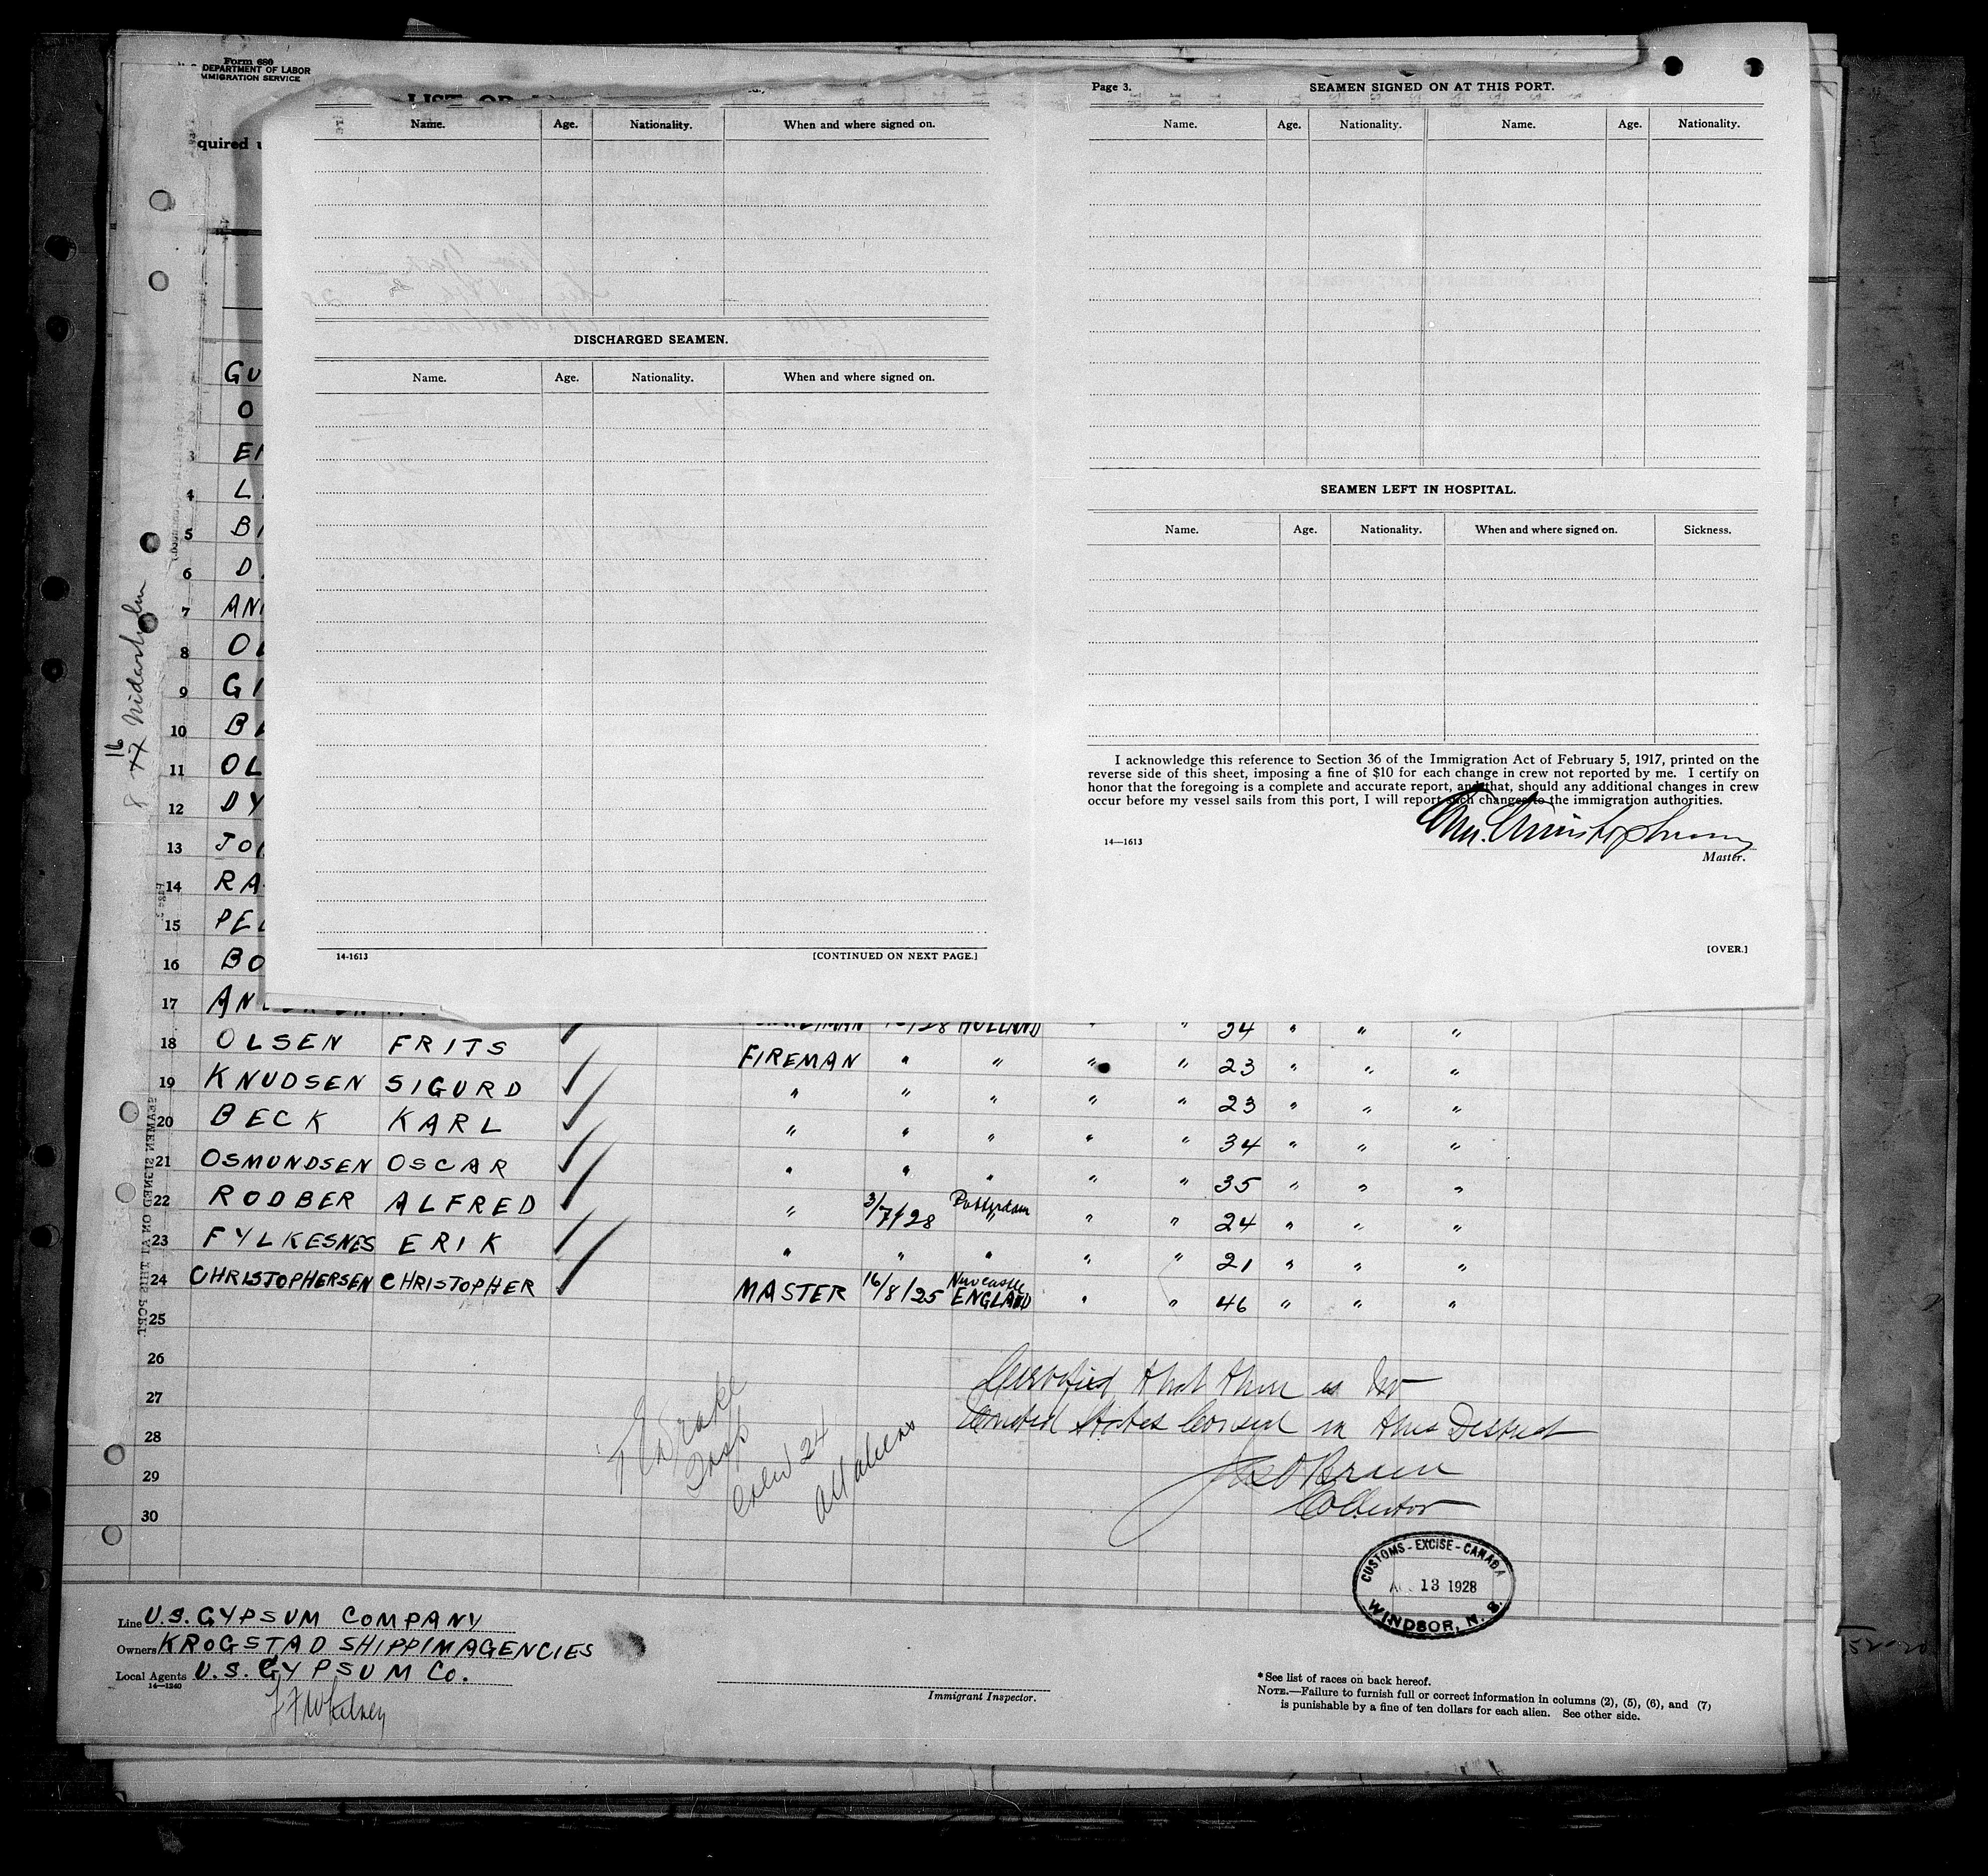 Form 680
DEPARTMENT OF LABOR
IMMIGRATION SERVICE
LIST OR
quired u
Name. Age. Nationality. When and where signed on.
DISCHARGED SEAMEN.
Name. Age. Nationality. When and where signed on.
14-1613 [CONTINUED ON NEXT PAGE.]
Page 3. SEAMEN SIGNED ON AT THIS PORT.
Name. Age. Nationality. Name. Age. Nationality.
SEAMEN LEFT IN HOSPITAL.
Name. Age. Nationality. When and where signed on. Sickness.
I acknowledge this reference to Section 36 of the Immigration Act of February 5, 1917, printed on the
reverse side of this sheet, imposing a fine of $10 for each change in crew not reported by me. I certify on
honor that the foregoing is a complete and accurate report, and that, should any additional changes in crew
occur before my vessel sails from this port, I will report such changes to the immigration authorities.
Chr. Christophersen
14—1613 Master.
[OVER.]
16
8 17 Nidarholm
1 GU
2 O
3 EN
4 L
5 BI
6 D
7 ANI
8 OL
9 GI
10 BL
11 OL
12 DY
13 JO
14 RA
15 PE
16 BO
17 AN HOLLAND " " 34 " " "
18 OLSEN FRITS FIREMAN " " " " 23 " " "
19 KNUDSEN SIGURD " " " " " 23 " " "
20 BECK KARL " " " " " 34 " " "
21 OSMUNDSEN OSCAR " " " " " 35 " " "
22 RODBER ALFRED " 3/7/28 Rotterdam " " 24 " " "
23 FYLKESNES ERIK " " " " " 21 " " "
24 CHRISTOPHERSEN CHRISTOPHER MASTER 16/8/25 Newcastle ENGLAND " " 46 " " "
25
26
27
28
29
30
Drake
Insp
Crew 24
all aliens
Certified that there is no
United States Consul in this District
Collector
CUSTOMS - EXCISE - CANADA
13 1928
WINDSOR, N. S.
Line U.S. GYPSUM COMPANY
Owners KROGSTAD SHIPPIMAGENCIES
Local Agents U.S. GYPSUM Co.
14—1240
Immigrant Inspector.
*See list of races on back hereof.
NOTE.—Failure to furnish full or correct information in columns (2), (5), (6), and (7)
is punishable by a fine of ten dollars for each alien. See other side.